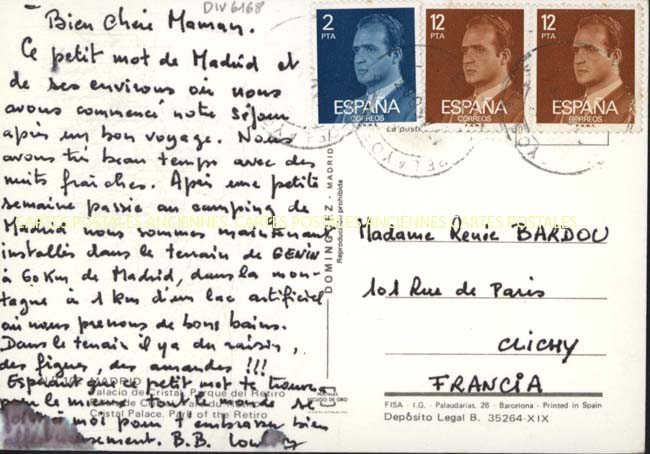 DIV6168
Bien Chère Maman.
Ce petit mot de Madrid et
de ses environs où nous
avons commencé notre séjour
après un bon voyage. Nous
avons très beau temps avec des
nuits fraîches. Après une petite
semaine passée au camping de
Madrid nous sommes maintenant
installés dans le terrain de GENIN
à 60 Km de Madrid, dans la mon-
tagne à 1 km d'un lac artificiel
où nous prenons de bons bains.
Dans le terrain il y a du raisin,
des figues, des amandes !!!
Espérant que ce petit mot te trouvera
pour le mieux tout le monde se
à moi pour t'embrasser bien
B.B.
MADRID
Palacio de Cristal. Parque del Retiro
Cristal Palace. Park of the Retiro
2
PTA
ESPAÑA
CORREOS
12
PTA
ESPAÑA
CORREOS
12
PTA
ESPAÑA
CORREOS
La poste
DOMINGUEZ - MADRID
Reproducción prohibida
ESCUDO DE ORO
CARTES POSTALES ANCIENNES CARTES POSTALES ANCIENNES CARTES POSTALES
Madame Renée BARDOU
101 Rue de Paris
CLICHY
FRANCIA
FISA - I.G. - Palaudarias, 26 - Barcelona - Printed in Spain
Depósito Legal B. 35264-XIX